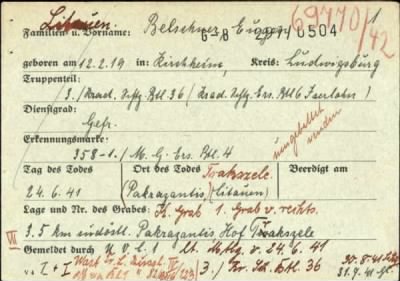 Litauen. 69770/42 1
Familien u. Vorname: Belschner Eugen
geboren am 12.2.19 in Kirchheim, Kreis: Ludwigsburg
Truppenteil:
3./Krad. Schtz. Btl 36 (Krad. Schtz. Ers. Btl 6 Iserlohn)
Dienstgrad: Gefr.
Erkennungsmarke:
358-1./M.G. Ers. Btl. 4
Tag des Todes Ort des Todes Trakszele Beerdigt am
24.6.41 (Pakragantis) (Litauen)
Lage und Nr. des Grabes: Grab 1. Grab v. rechts.
3.5 km südöstl. Pakragantis Hof Trakszele
VII
Gemeldet durch lt. v. 24.6.41 30.8.41
" I + I 3./Kr. Btl. 36 31.9.41